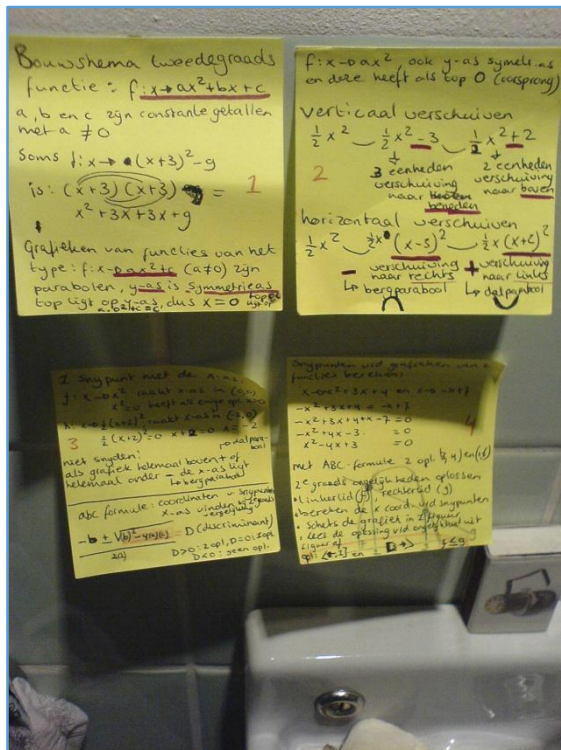 Bouwshema tweedegraads
functie : f: x → ax² + bx + c
a, b en c zijn constante getallen
met a ≠ 0
Soms f: x → (x+3)² - 9
is: (x+3)(x+3) =
x² + 3x + 3x + 9
1
Grafieken van functies van het
type: f: x → ax² + c (a ≠ 0) zijn
parabolen, y-as is symmetrieas
top ligt op y-as, dus x = 0
f: x → ax², ook y-as symm.as
en deze heeft als top 0 (oorsprong)
verticaal verschuiven
½x² ½x² - 3 ½x² + 2
2
3 eenheden
verschuiving
naar beneden
2 eenheden
verschuiving
naar boven
horizontaal verschuiven
½x² ½x (x-5)² ½x (x+2)²
- verschuiving
naar rechts
↳ bergparabool
+ verschuiving
naar links
↳ dalparabool
1 snypunt met de x-as
f: x → x² raakt x-as in (0,0)
x² = 0 heeft als enige opl. x=0
½(x+2)² raakt x-as in (-2,0)
3
½(x+2)² = 0 x+2 = 0 x = -2
niet snyden:
als grafiek helemaal boven + of
helemaal onder - de x-as ligt
dalparabool
↳ bergparabool
abc formule: coordinaten v snypunten
x-as vinden
-b ± √(b)² - 4(a)(c)
2(a)
= D (discriminant)
D>0: 2 opl, D=0: 1 opl
D<0: geen opl.
Snypunten v/d grafieken van 2
functies berekenen:
x → -x² + 3x + 4 en x → -x + 7
-x² + 3x + 4 = -x + 7
-x² + 3x + 4 + x - 7 = 0
-x² + 4x - 3 = 0
x² - 4x + 3 = 0
4
met ABC-formule 2 opl (3,4) en (1,6)
2e graads ongelijkheden oplossen
• linkerlid (f) rechterlid (g)
• bereken de x coord. v/d snypunten
• schets de grafiek in 1 figuur
• lees de oplossing v/d ongelijkheid uit
figuur af
opl: